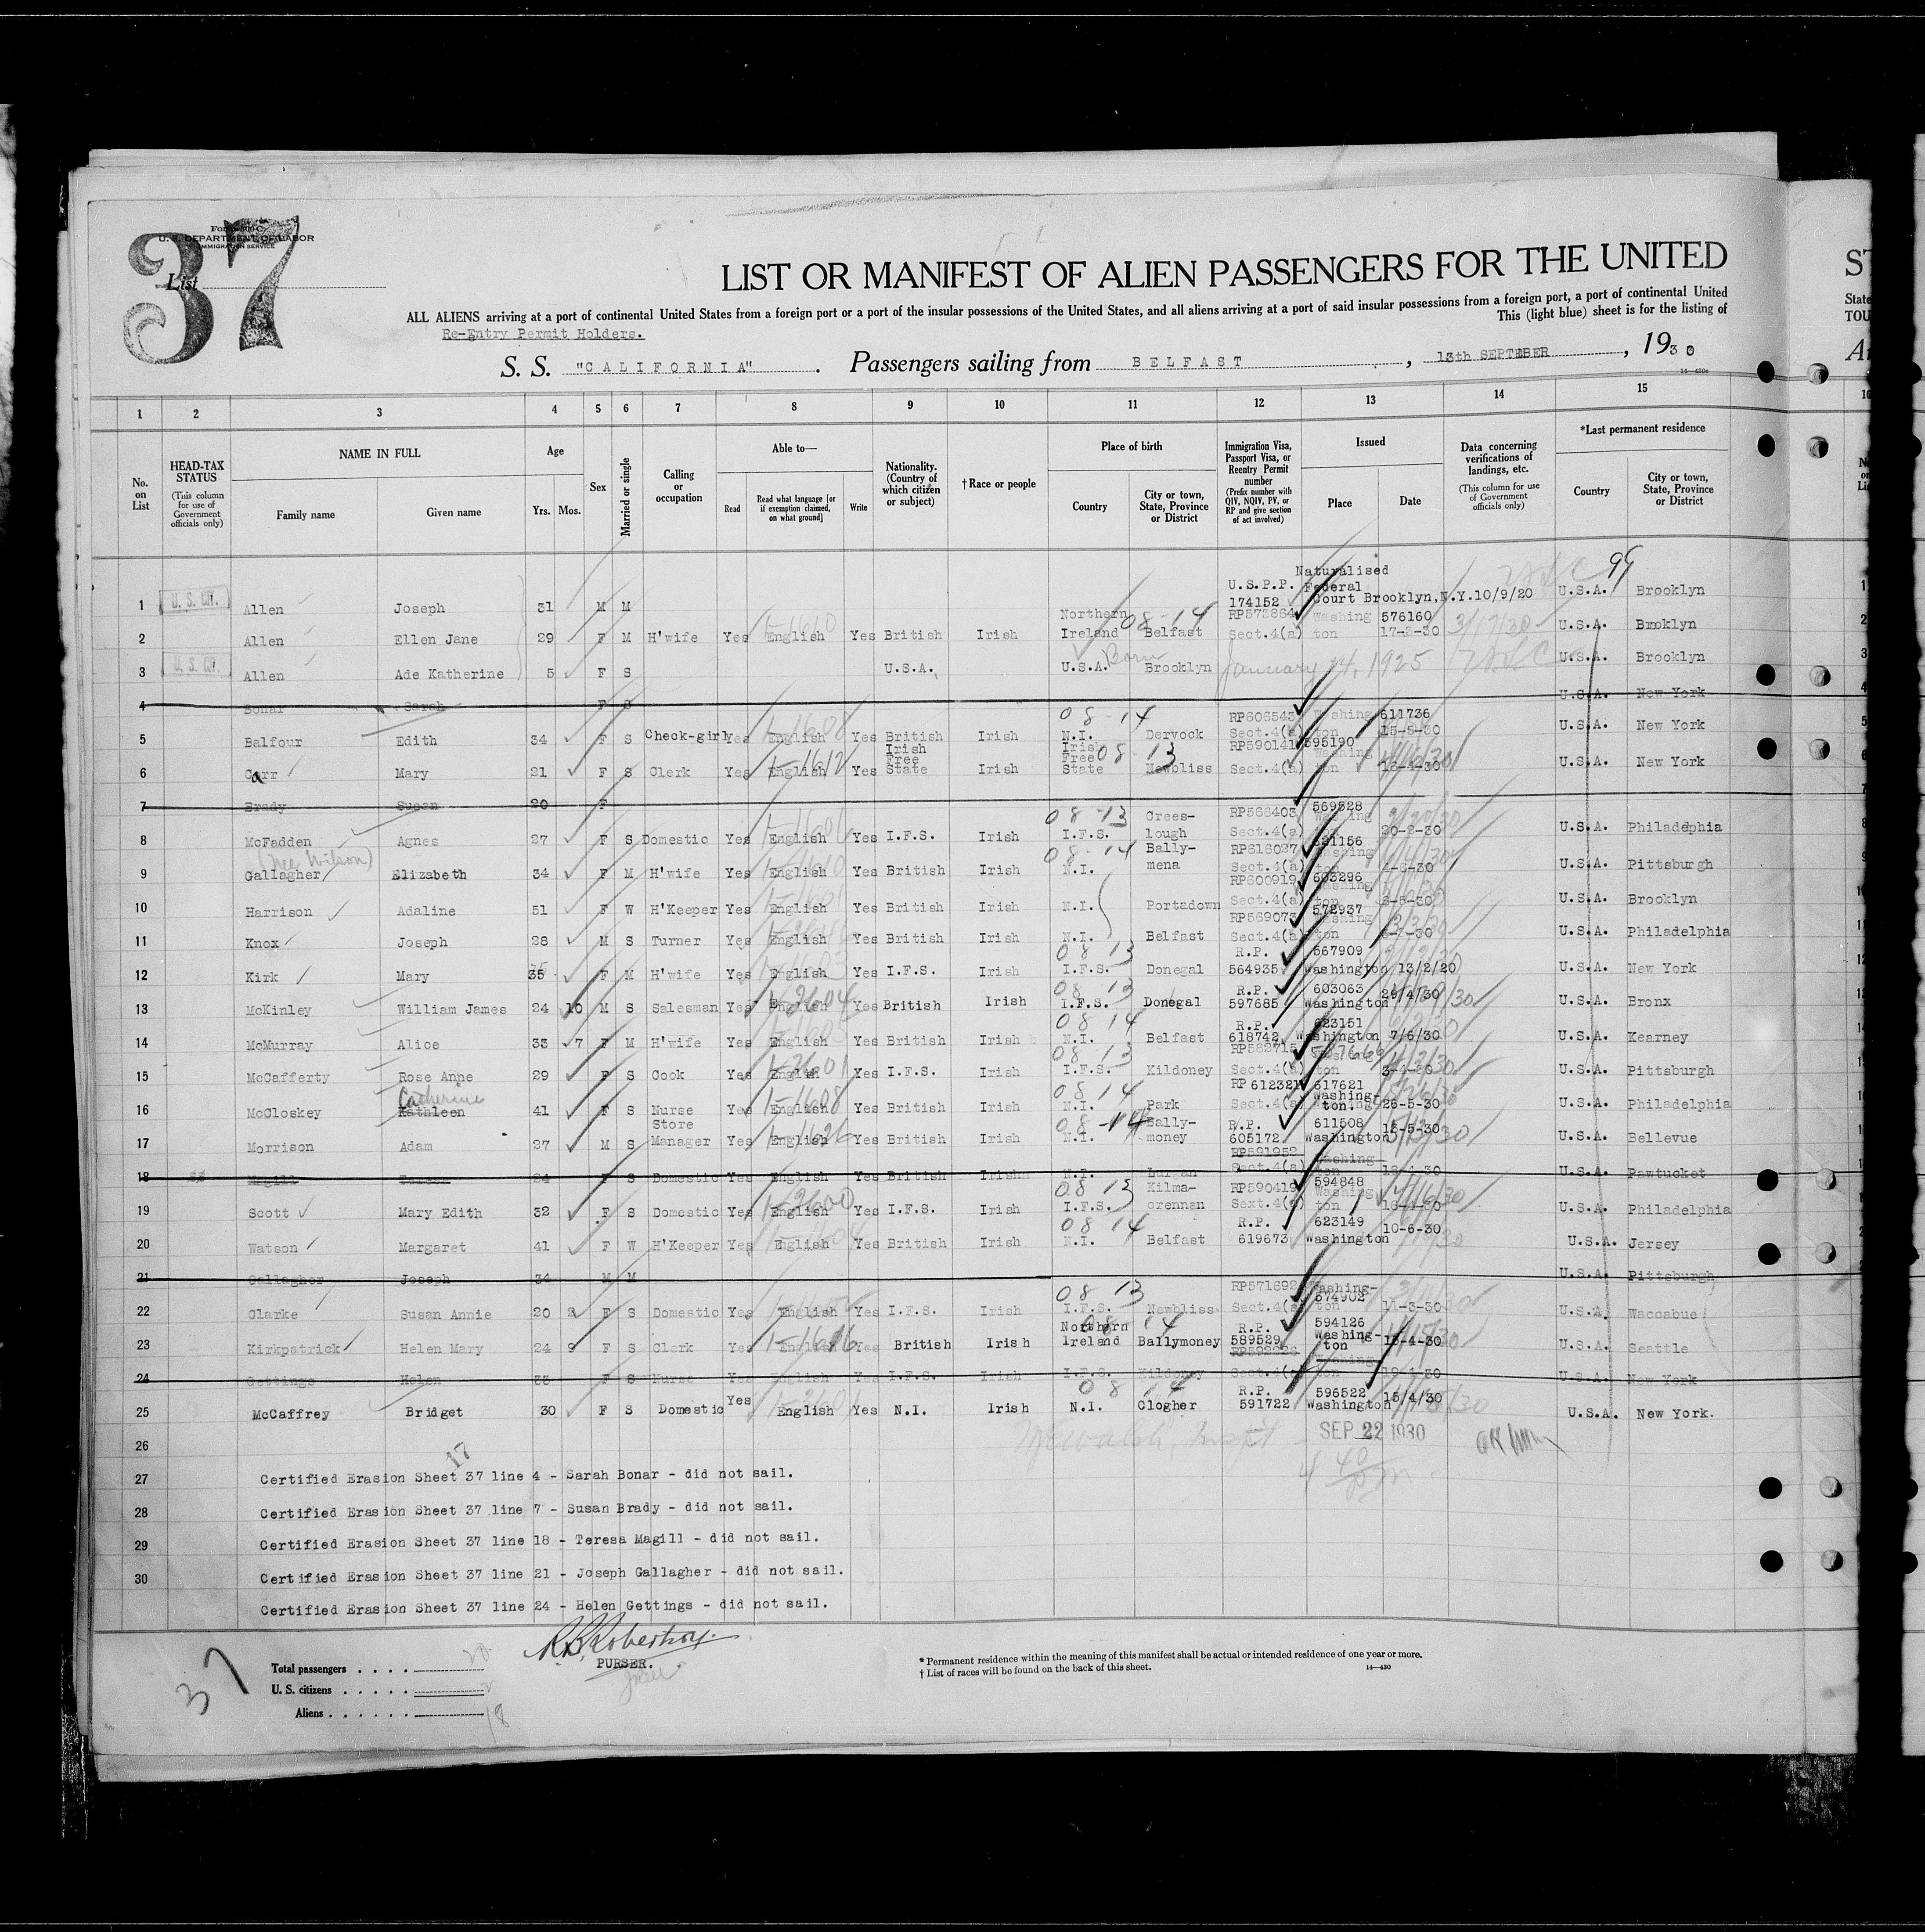 37
Form 500 C
U. S. DEPARTMENT OF LABOR
IMMIGRATION SERVICE
List
LIST OR MANIFEST OF ALIEN PASSENGERS FOR THE UNITED
ALL ALIENS arriving at a port of continental United States from a foreign port or a port of the insular possessions of the United States, and all aliens arriving at a port of said insular possessions from a foreign port, a port of continental United
This (light blue) sheet is for the listing of
Re-Entry Permit Holders.
S. S. "CALIFORNIA". Passengers sailing from BELFAST, 13th SEPTEMBER, 1930
1 2 3 4 5 6 7 8 9 10 11 12 13 14 15
No. on List
HEAD-TAX STATUS (This column for use of Government officials only)
NAME IN FULL
Family name Given name
Age
Yrs. Mos.
Sex
Married or single
Calling or occupation
Able to—
Read Read what language [or if exemption claimed, on what ground] Write
Nationality. (Country of which citizen or subject)
†Race or people
Place of birth
Country City or town, State, Province or District
Immigration Visa, Passport Visa, or Reentry Permit number (Prefix number with QIV, NQIV, PV, or RP and give section of act involved)
Issued
Place Date
Data concerning verifications of landings, etc. (This column for use of Government officials only)
*Last permanent residence
Country City or town, State, Province or District
1 U. S. CIT. Allen Joseph 31 M M U.S.P.P. 174152 Naturalised Federal Court Brooklyn, N.Y. 10/9/20 U.S.A. Brooklyn
2 Allen Ellen Jane 29 F M H'wife Yes English Yes British Irish Northern Ireland 08-14 Belfast RP573864 Sect.4(a) Washing ton 576160 17-3-30 3/17/30 U.S.A. Brooklyn
3 U. S. CIT. Allen Ade Katherine 5 F S U.S.A. U.S.A. Born Brooklyn January 24, 1925 U.S.A. Brooklyn
4 Bonar Sarah F S U.S.A. New York
5 Balfour Edith 34 F S Check-girl Yes English Yes British Irish 08-14 N.I. Dervock RP606543 Sect.4(a) Washing ton 611736 15-5-30 U.S.A. New York
6 Carr Mary 21 F S Clerk Yes English Yes Irish Free State Irish Irish Free State 08-13 Newbliss RP590141 Sect.4(a) 595190 Washing ton 16-4-30 U.S.A. New York
7 Brady Susan 20 F
8 McFadden Agnes 27 F S Domestic Yes English Yes I.F.S. Irish 08-13 I.F.S. Creeslough RP566403 Sect.4(a) 569528 Washing 20-2-30 U.S.A. Philadelphia
9 (Nee Wilson) Gallagher Elizabeth 34 F M H'wife Yes English Yes British Irish 08-14 N.I. Ballymena RP616027 Sect.4(a) Washing ton U.S.A. Pittsburgh
10 Harrison Adaline 51 F W H'Keeper Yes English Yes British Irish N.I. Portadown RP600919 Sect.4(a) 603296 Washing ton U.S.A. Brooklyn
11 Knox Joseph 28 M S Turner Yes English Yes British Irish N.I. Belfast RP569073 Sect.4(a) 572937 Washing ton U.S.A. Philadelphia
12 Kirk Mary 35 F M H'wife Yes English Yes I.F.S. Irish 08 13 I.F.S. Donegal R.P. 564935 567909 Washington 13/2/20 U.S.A. New York
13 McKinley William James 24 10 M S Salesman Yes English Yes British Irish 08 13 I.F.S. Donegal R.P. 597685 603063 Washington 29/4/30 U.S.A. Bronx
14 McMurray Alice 33 7 F M H'wife Yes English Yes British Irish 08 14 N.I. Belfast R.P. 618742 623151 Washington 7/6/30 U.S.A. Kearney
15 McCafferty Rose Anne 29 F S Cook Yes English Yes I.F.S. Irish 08 13 I.F.S. Kildoney RP582715 Sect.4(a) ton 3-4-30 U.S.A. Pittsburgh
16 McCloskey Catherine Kathleen 41 F S Nurse Yes English Yes British Irish 08 14 N.I. Park RP 612321 Sect.4(a) 617621 Washington. 26-5-30 U.S.A. Philadelphia
17 Morrison Adam 27 M S Store Manager Yes English Yes British Irish 08-14 N.I. Ballymoney R.P. 605172 611508 Washington 13-5-30 U.S.A. Bellevue
18 Magill Teresa 24 F S Domestic Yes English Yes British Irish N.I. Lurgan RP591952 Sect.4(a) Washing ton U.S.A. Pawtucket
19 Scott Mary Edith 32 F S Domestic Yes English Yes I.F.S. Irish 08 13 I.F.S. Kilmacrennan RP590419 Sext.4(a) 594848 Washing ton 16-4-30 U.S.A. Philadelphia
20 Watson Margaret 41 F W H'Keeper Yes English Yes British Irish 08 14 N.I. Belfast R.P. 619673 623149 Washington 10-6-30 U.S.A. Jersey
21 Gallagher Joseph 34 M M U.S.A. Pittsburgh
22 Clarke Susan Annie 20 2 F S Domestic Yes English Yes I.F.S. Irish 08 13 I.F.S. Newbliss RP571692 Sect.4(a) Washington 574902 11-3-30 U.S.A. Waccabue
23 Kirkpatrick Helen Mary 24 9 F S Clerk Yes English Yes British Irish Northern Ireland 08 14 Ballymoney R.P. 589529 594126 Washington 15-4-30 U.S.A. Seattle
24 Gettings Helen 35 F S Nurse Yes English Yes I.F.S. Irish I.F.S. Kildoney Sect.4(a) Washing ton 19-4-30 U.S.A. New York
25 McCaffrey Bridget 30 F S Domestic Yes English Yes N.I. Irish 08 14 N.I. Clogher R.P. 591722 596522 Washington 15/4/30 U.S.A. New York.
26 SEP 22 1930
27 Certified Erasion Sheet 37 line 4 - Sarah Bonar - did not sail.
28 Certified Erasion Sheet 37 line 7 - Susan Brady - did not sail.
29 Certified Erasion Sheet 37 line 18 - Teresa Magill - did not sail.
30 Certified Erasion Sheet 37 line 21 - Joseph Gallagher - did not sail.
Certified Erasion Sheet 37 line 24 - Helen Gettings - did not sail.
37
Total passengers . . . . 20
U. S. citizens . . . . . 2
Aliens . . . . . . 18
PURSER.
* Permanent residence within the meaning of this manifest shall be actual or intended residence of one year or more.
† List of races will be found on the back of this sheet.
14—430